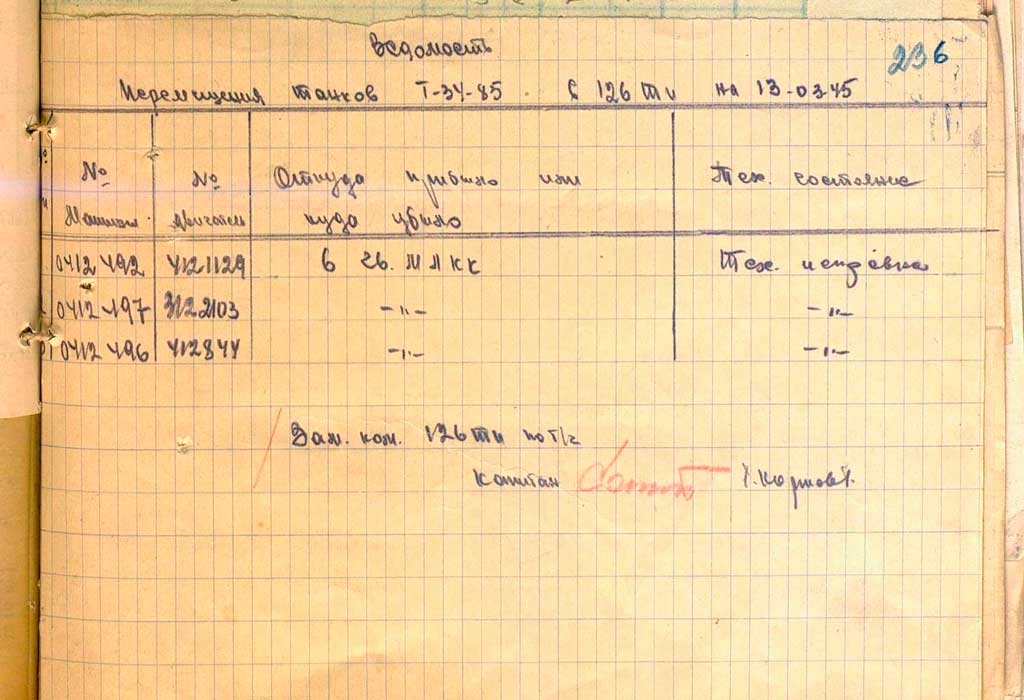 Ведомость
236
Перемещения танков Т-34-85 в 126 тп на 13-03-45
№ машин № двигателя Откуда прибыло или куда убыло Тех. состояние
0412492 4121129 6 гв. ММКК Тех. исправна
0412497 3122103 -"- -"-
0412496 412844 -"- -"-
Зам. ком. 126 тп по т/ч
Капитан /Карпов/.